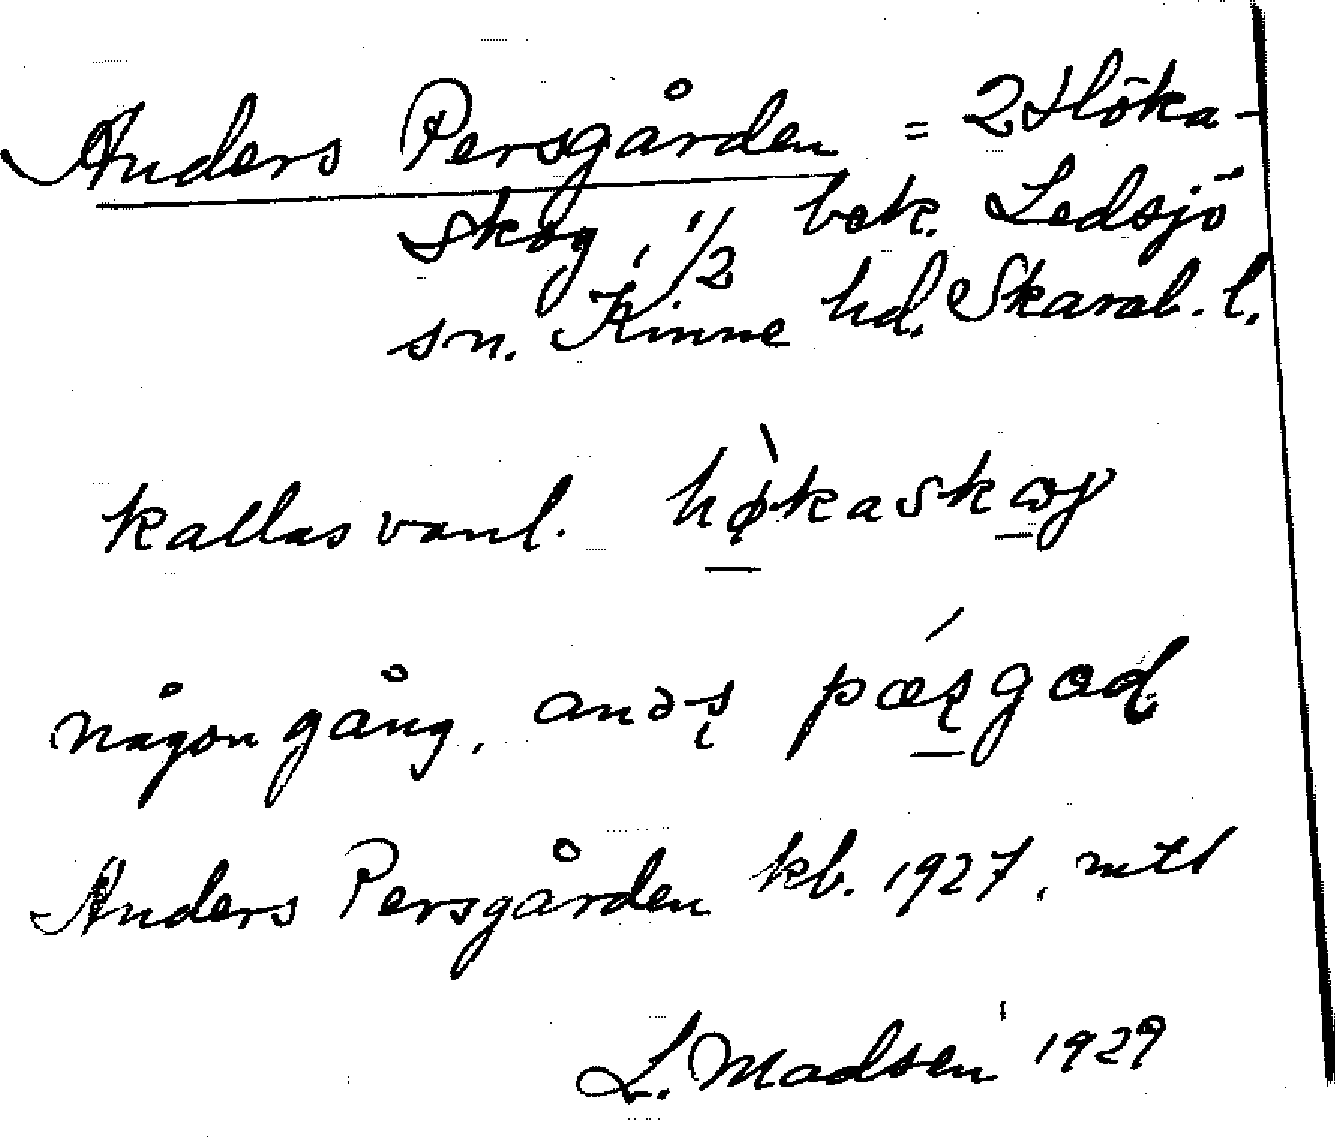 Anders Persgården = 2 Höka-
skog, 1/2 bek. Ledsjö
sn. Kinne hd. Skarab. l.
kallas vanl. hø̀kaskɷg
någon gång, andəʂ pǽʂgaḍ
Anders Persgården kb. 1927, mtl
L. Madsen 1929